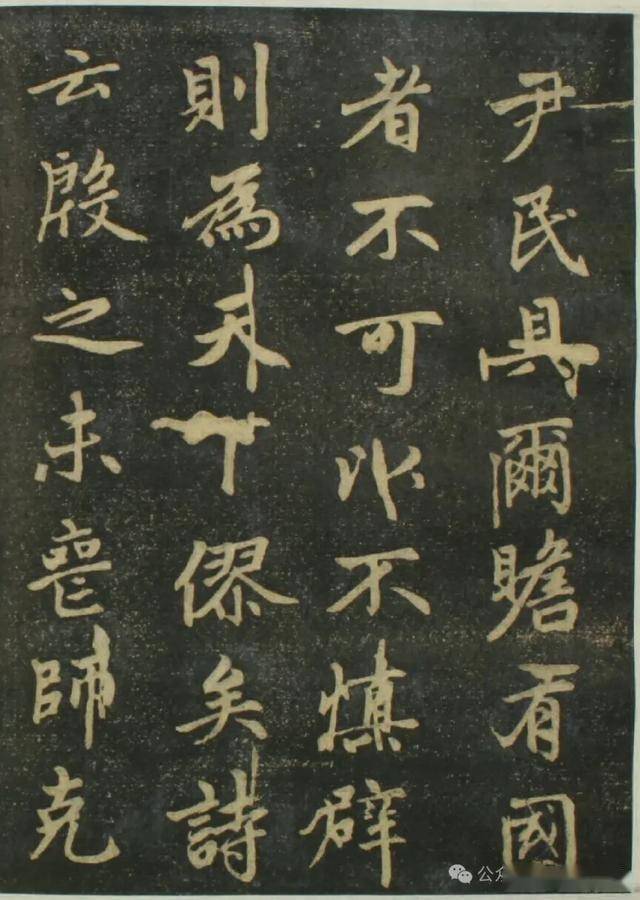 尹民具爾瞻有國
者不可以不慎辟
則為天下僇矣詩
云殷之未喪師克
公众